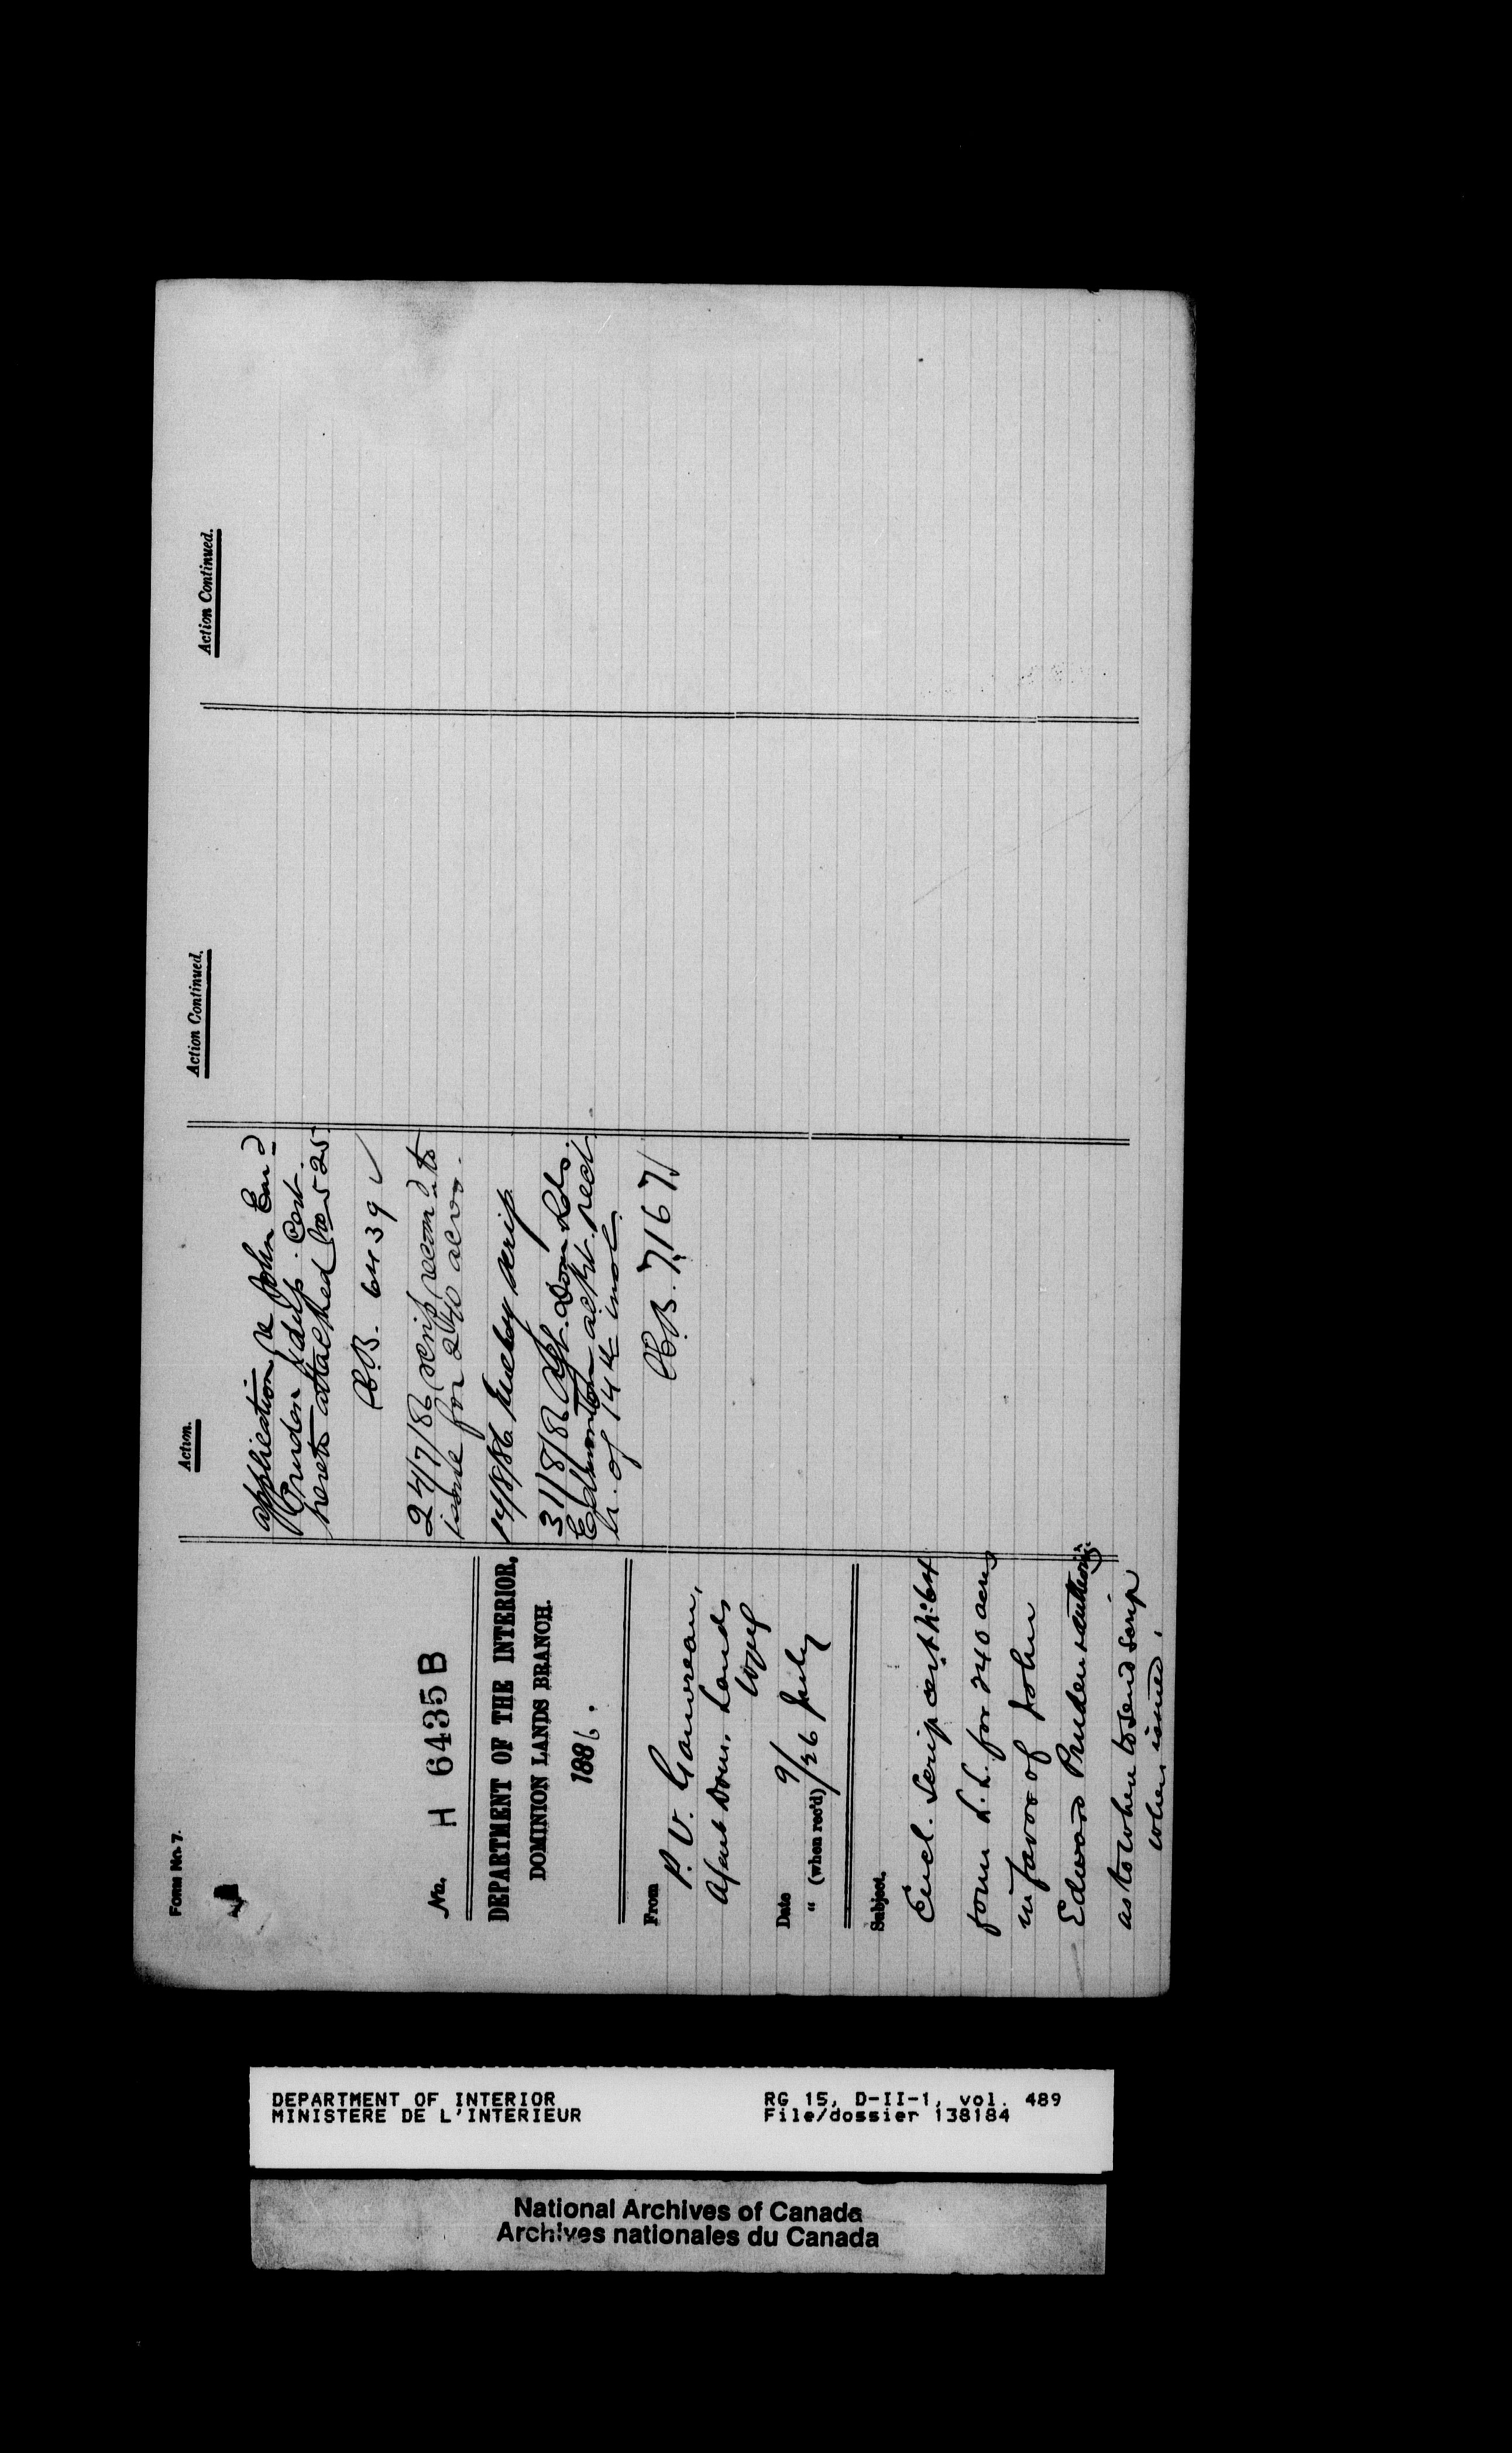 Form No. 7.
No. H 6435 B
DEPARTMENT OF THE INTERIOR,
DOMINION LANDS BRANCH.
1886.
From P. V. Gauvreau,
Agent Dom. Lands
Date 9/
" (when rec'd) 26 July
Subject.
Encl. Scrip cert No. 64
form L.L. for 240 acres
in favor of John
Edward Pruden &
as to when to send scrip
when issued.
Action.
application re John Ewd
Pruden &
hereto attached
6439 ✓
24/7/86 scrip recomd to
issue for 240 acres.
14/8/86 scrip
31/8/86 Agt. Dom Lds.
Edmonton
of 14th
B. 7167
Action Continued.
Action Continued.
DEPARTMENT OF INTERIOR
MINISTERE DE L'INTERIEUR
RG 15, D-II-1, vol. 489
File/dossier 138184
National Archives of Canada
Archives nationales du Canada